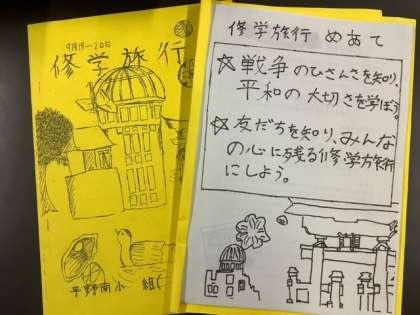 9月19〜20日
修学旅行
平野南小 組
修学旅行 めあて
☆戦争のひさんさを知り、
平和の大切さを学ぼう。
☆友だちを知り、みんな
の心に残る修学旅行
にしよう。